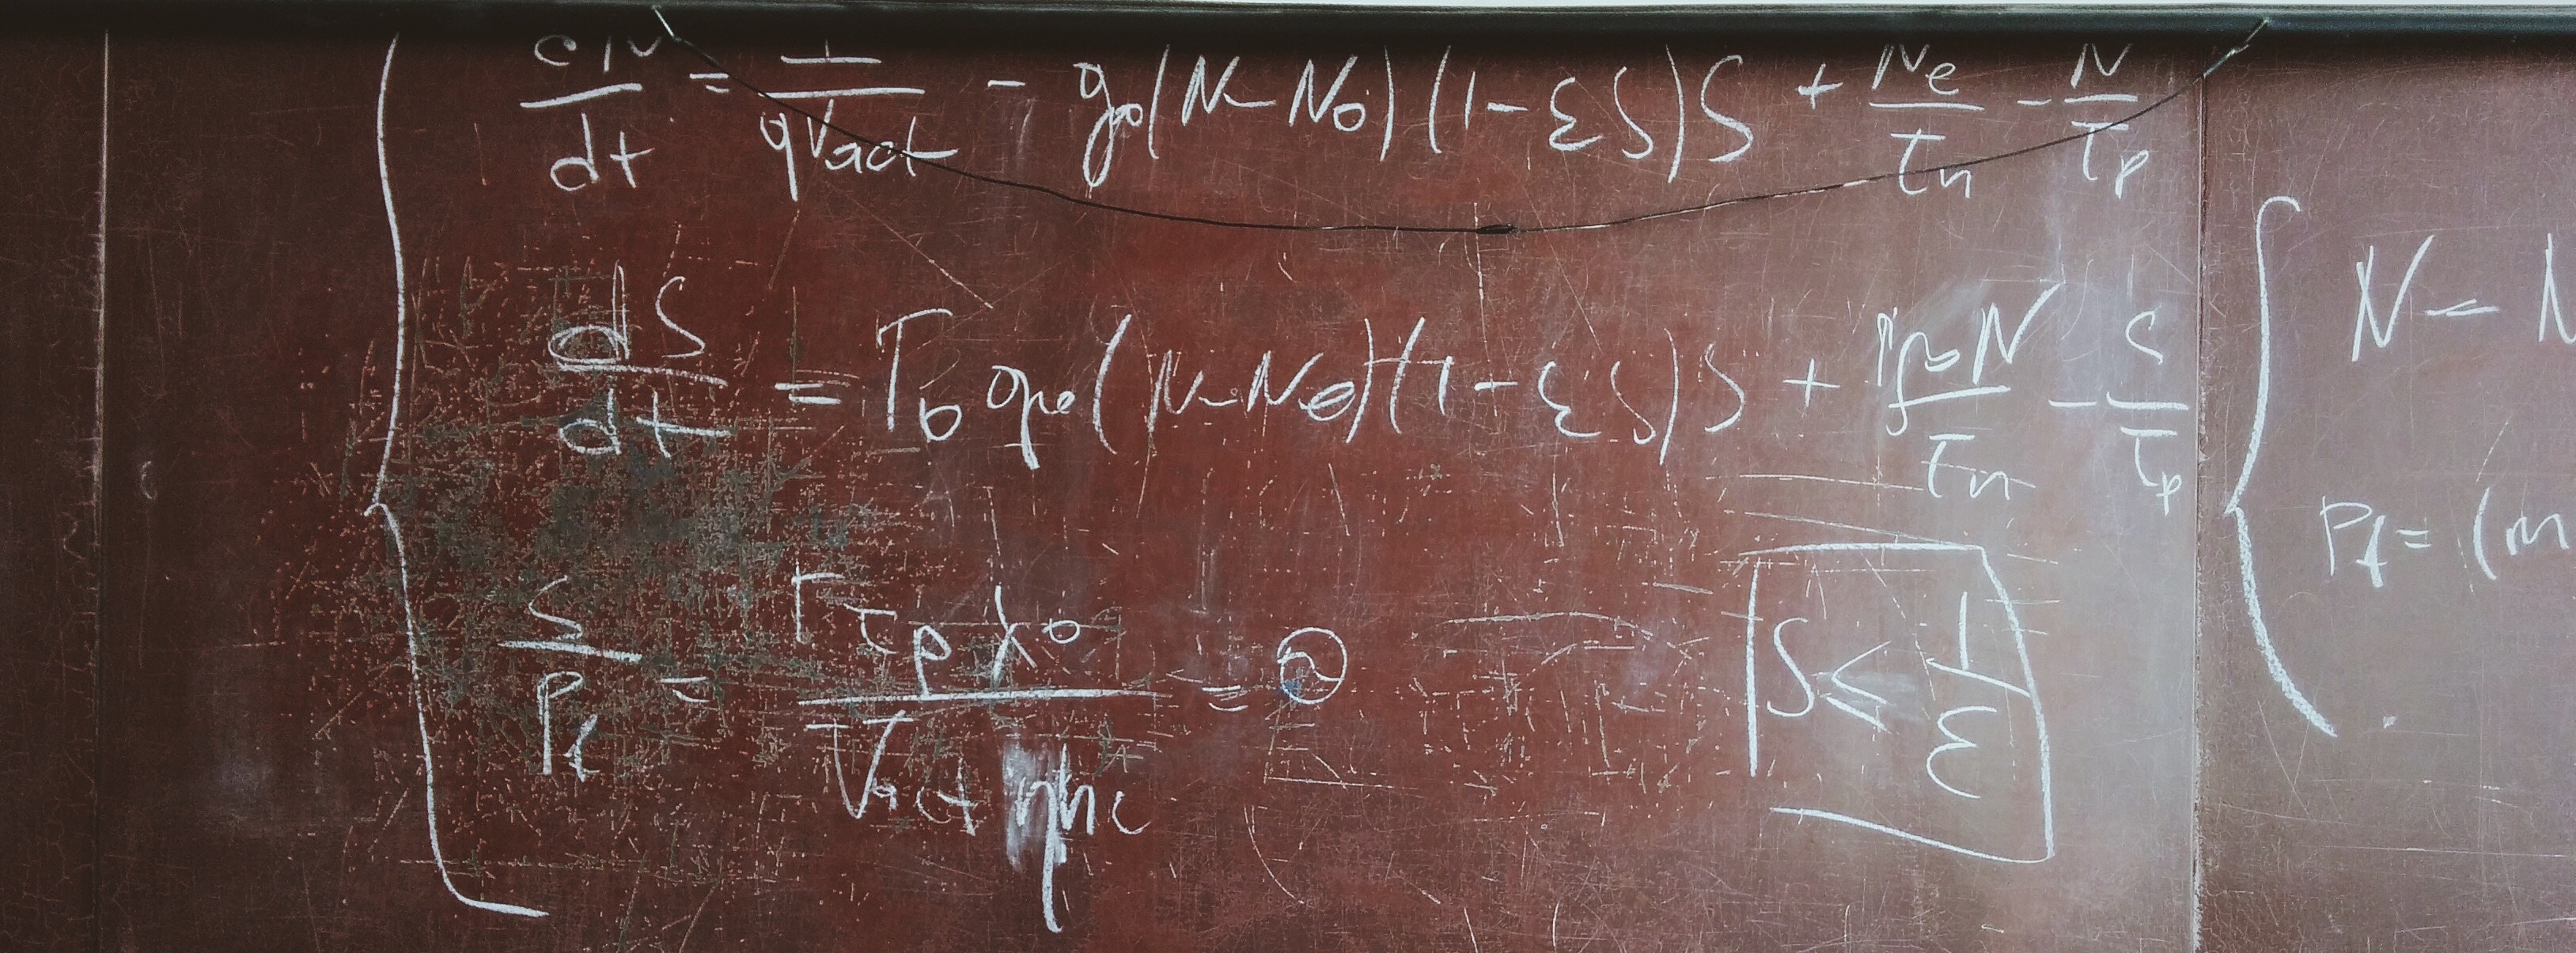 dN/dt = I/qVact - g₀(N-N₀)(1-εS)S + Ne/τn - N/τp
dS/dt = Γ₀ g₀(N-N₀)(1-εS)S + Γβ N/τn - S/τp
S/Pf = Γτp λ₀/Vact ηhc =
S ≤ 1/ε
N = N
Pf = (m